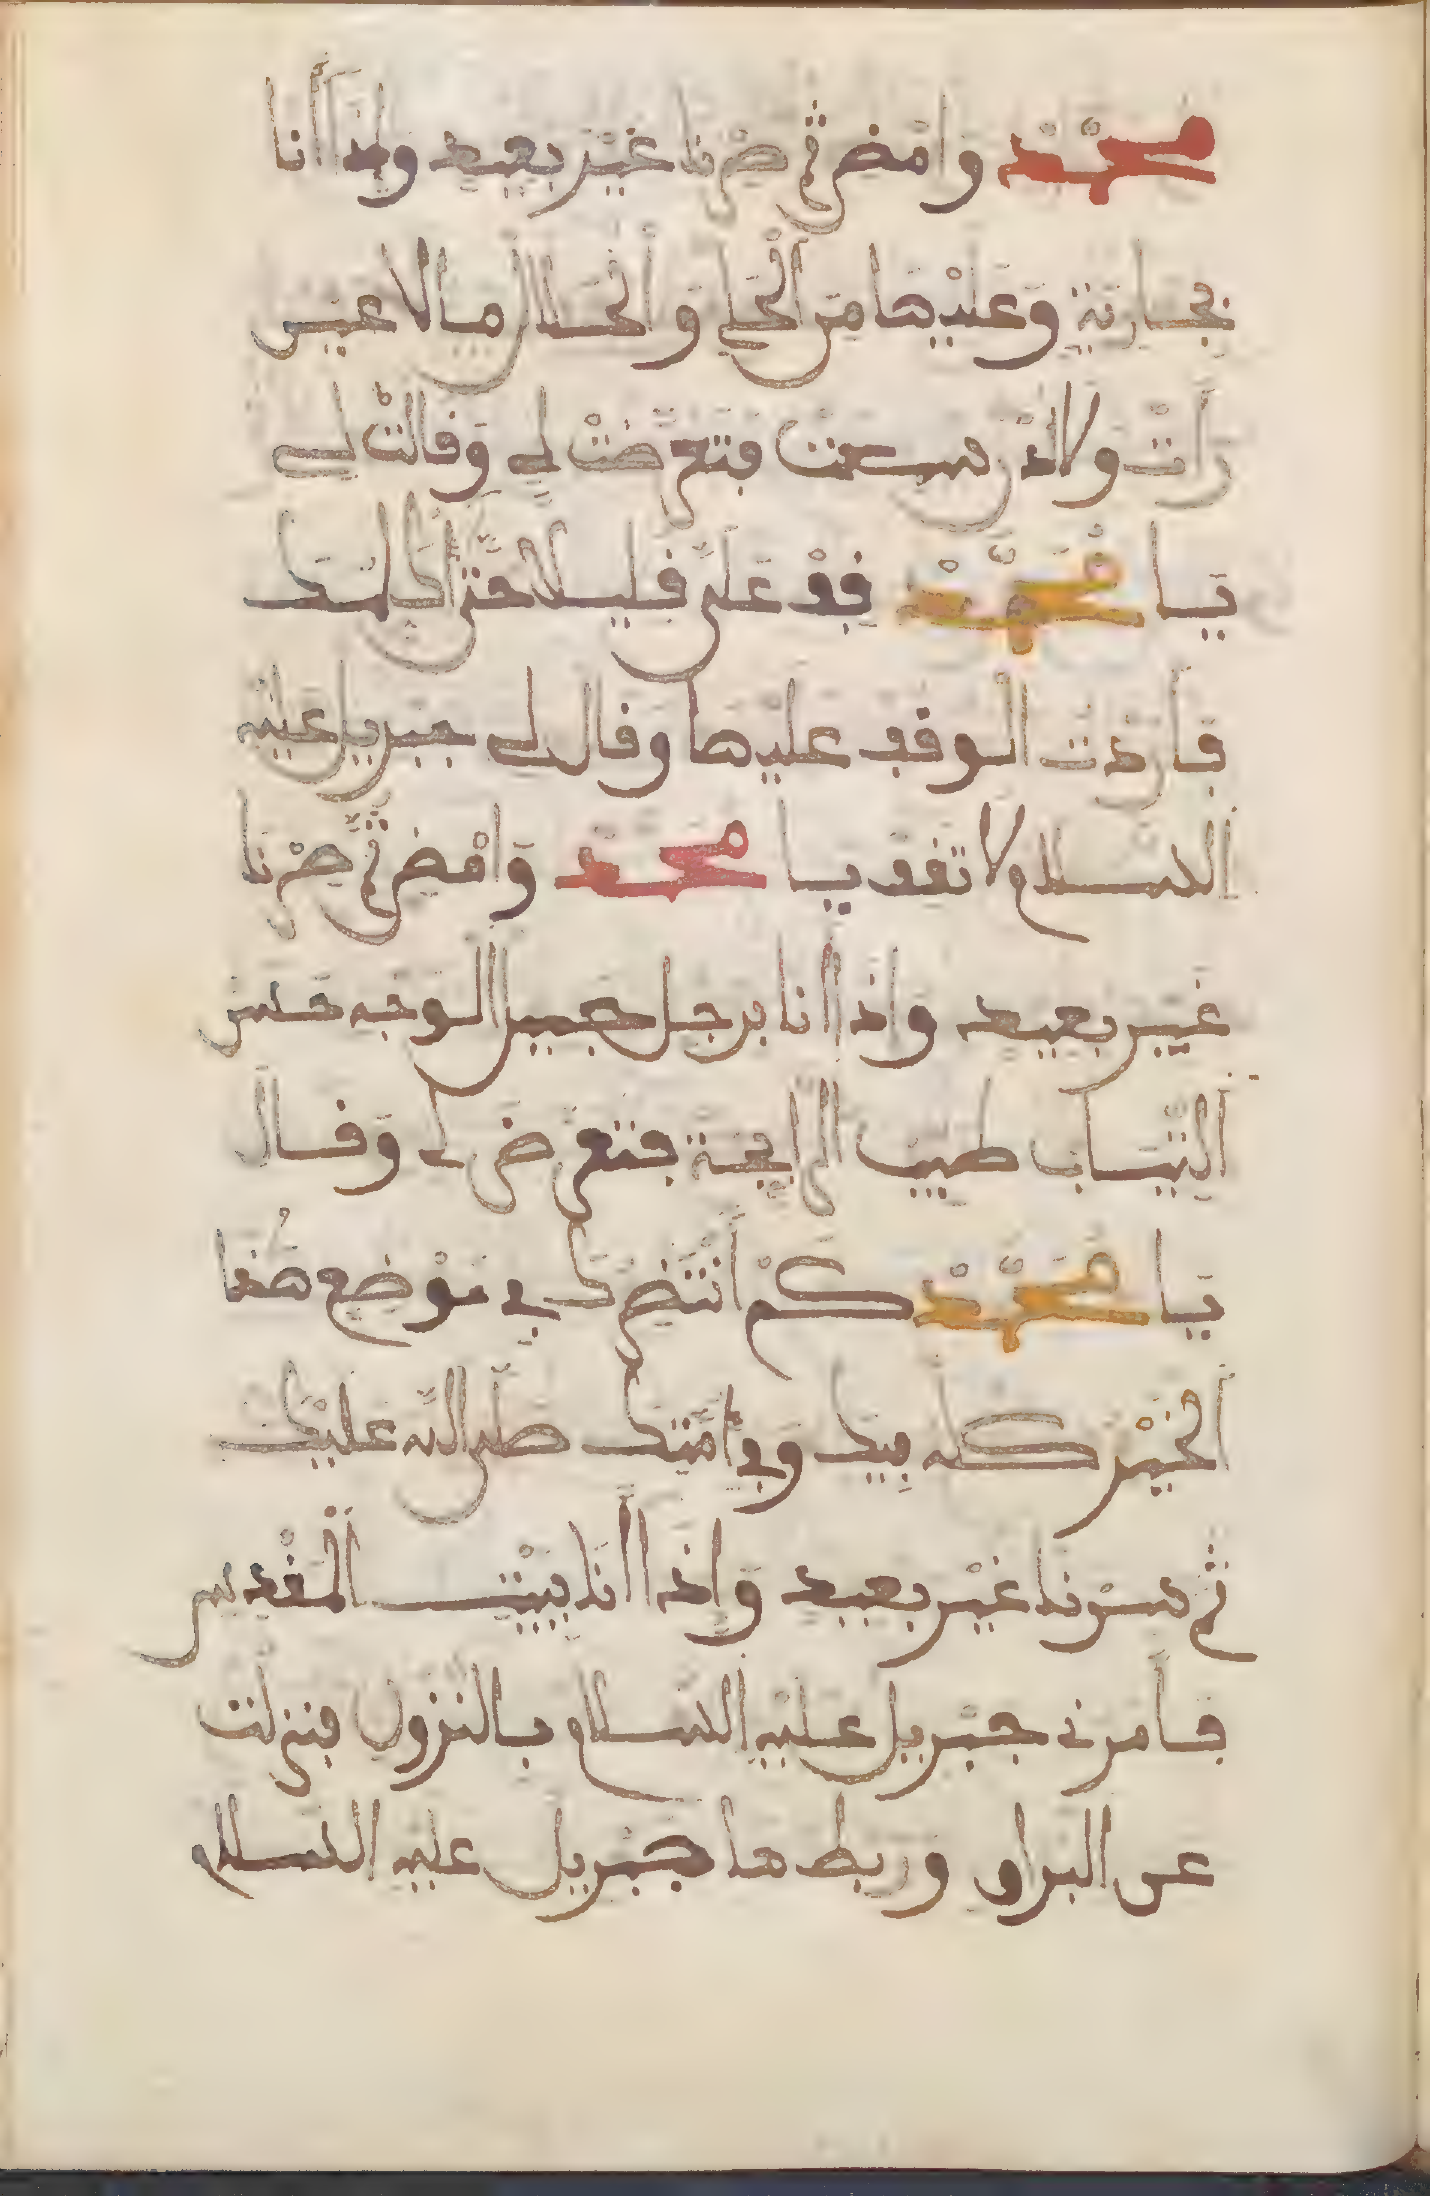 محمد وامض ثم ضرنا غير بعيد وإذا أنا
بجارية وعليها من الحلي والحلال ما لا عين
رأت ولا اذن سمعت فتعرضت لي وقالت لي
يا محمد قف علي قليلا حتى اكلمك
فأردت الوقف عليها وقال لي جبريل عليه
السلام لا تقف يا محمد وامض ثم ضرنا
غير بعيد واذا انا برجل جميل الوجه حسن
الثياب طيب الرايحة فتعرض لي وقال
يا محمد كم أنتضرك في موضع هذا
الخير كله بيدك وفي أمتك صلى الله عليك
ثم سرنا غير بعيد وإذا أنا ببيت المقدس
فأمرني جبريل عليه السلام بالنزول فنزلت
عن البراق وربطها جبريل عليه السلام